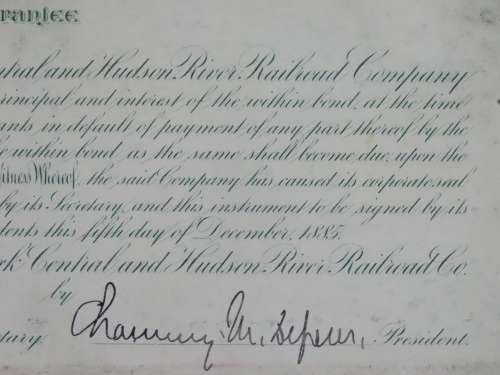 rantee
ntral and Hudson River Railroad Company
rincipal and interest of the within bond, at the time
anks in default of payment of any part thereof by the
e within bond as the same shall become due, upon the
itness Whereof, the said Company has caused its corporate seal
by its Secretary, and this instrument to be signed by its
dents this fifth day of December, 1885.
rk Central and Hudson River Railroad Co.
by
Chauncey M. Depew,
tary. President.